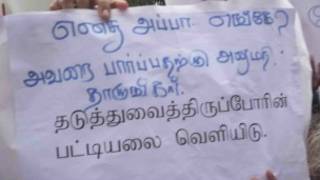 எனது அப்பா எங்கே
அவரை பார்ப்பதற்கு அனுமதி
தாருங்கள்.
தடுத்துவைத்திருப்போரின்
பட்டியலை வெளியிடு.